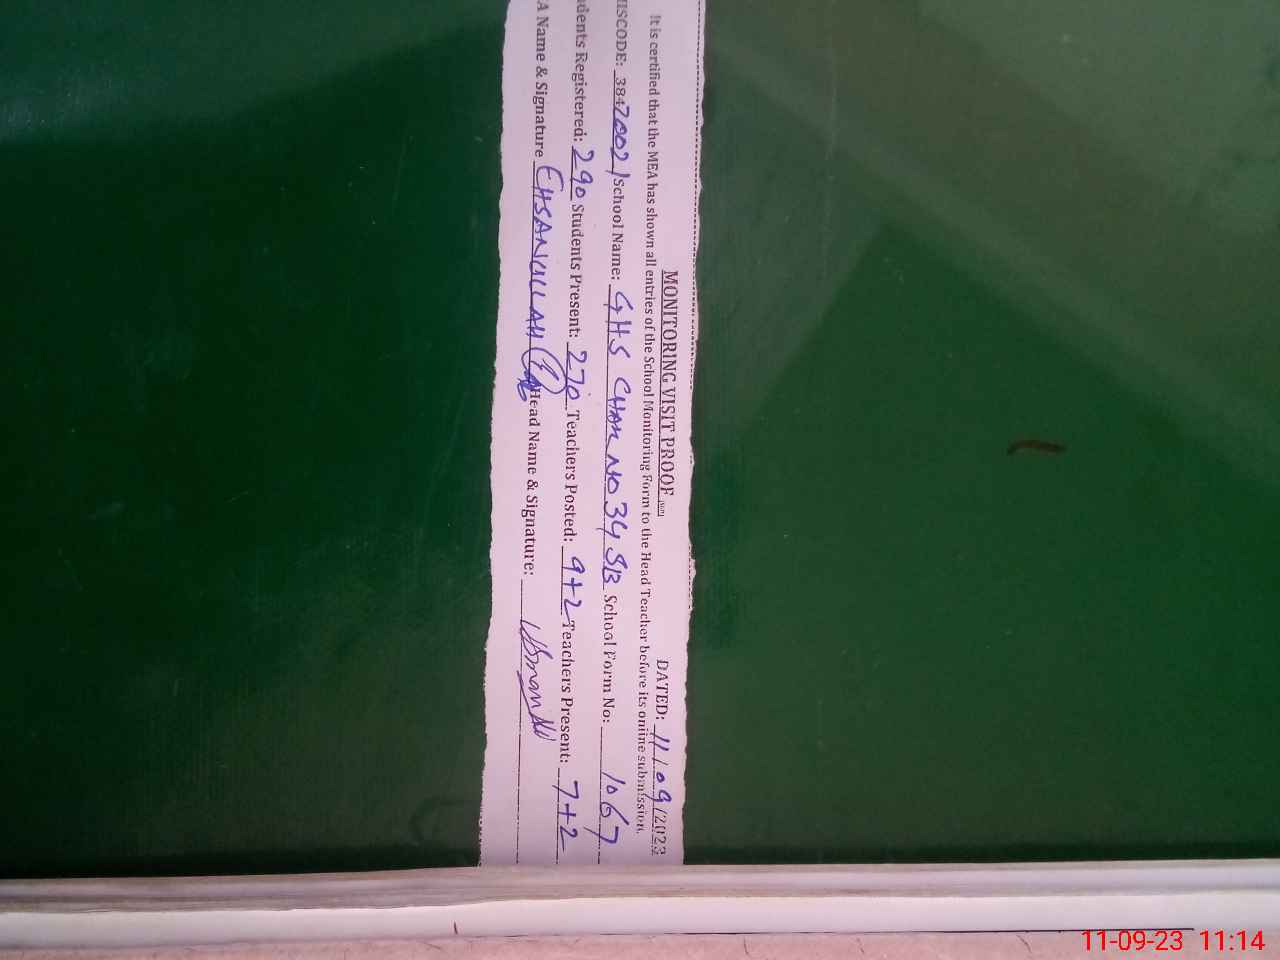 MONITORING VISIT PROOF DATED: 11/09/2023
It is certified that the MEA has shown all entries of the School Monitoring Form to the Head Teacher before its online submission.
ISCODE: 38470021 School Name: GHS CHAK NO 34 SB School Form No: 1067
dents Registered: 290 Students Present: 270 Teachers Posted: 9+2 Teachers Present: 7+2
A Name & Signature EHSANULLAH Head Name & Signature:
11-09-23 11:14